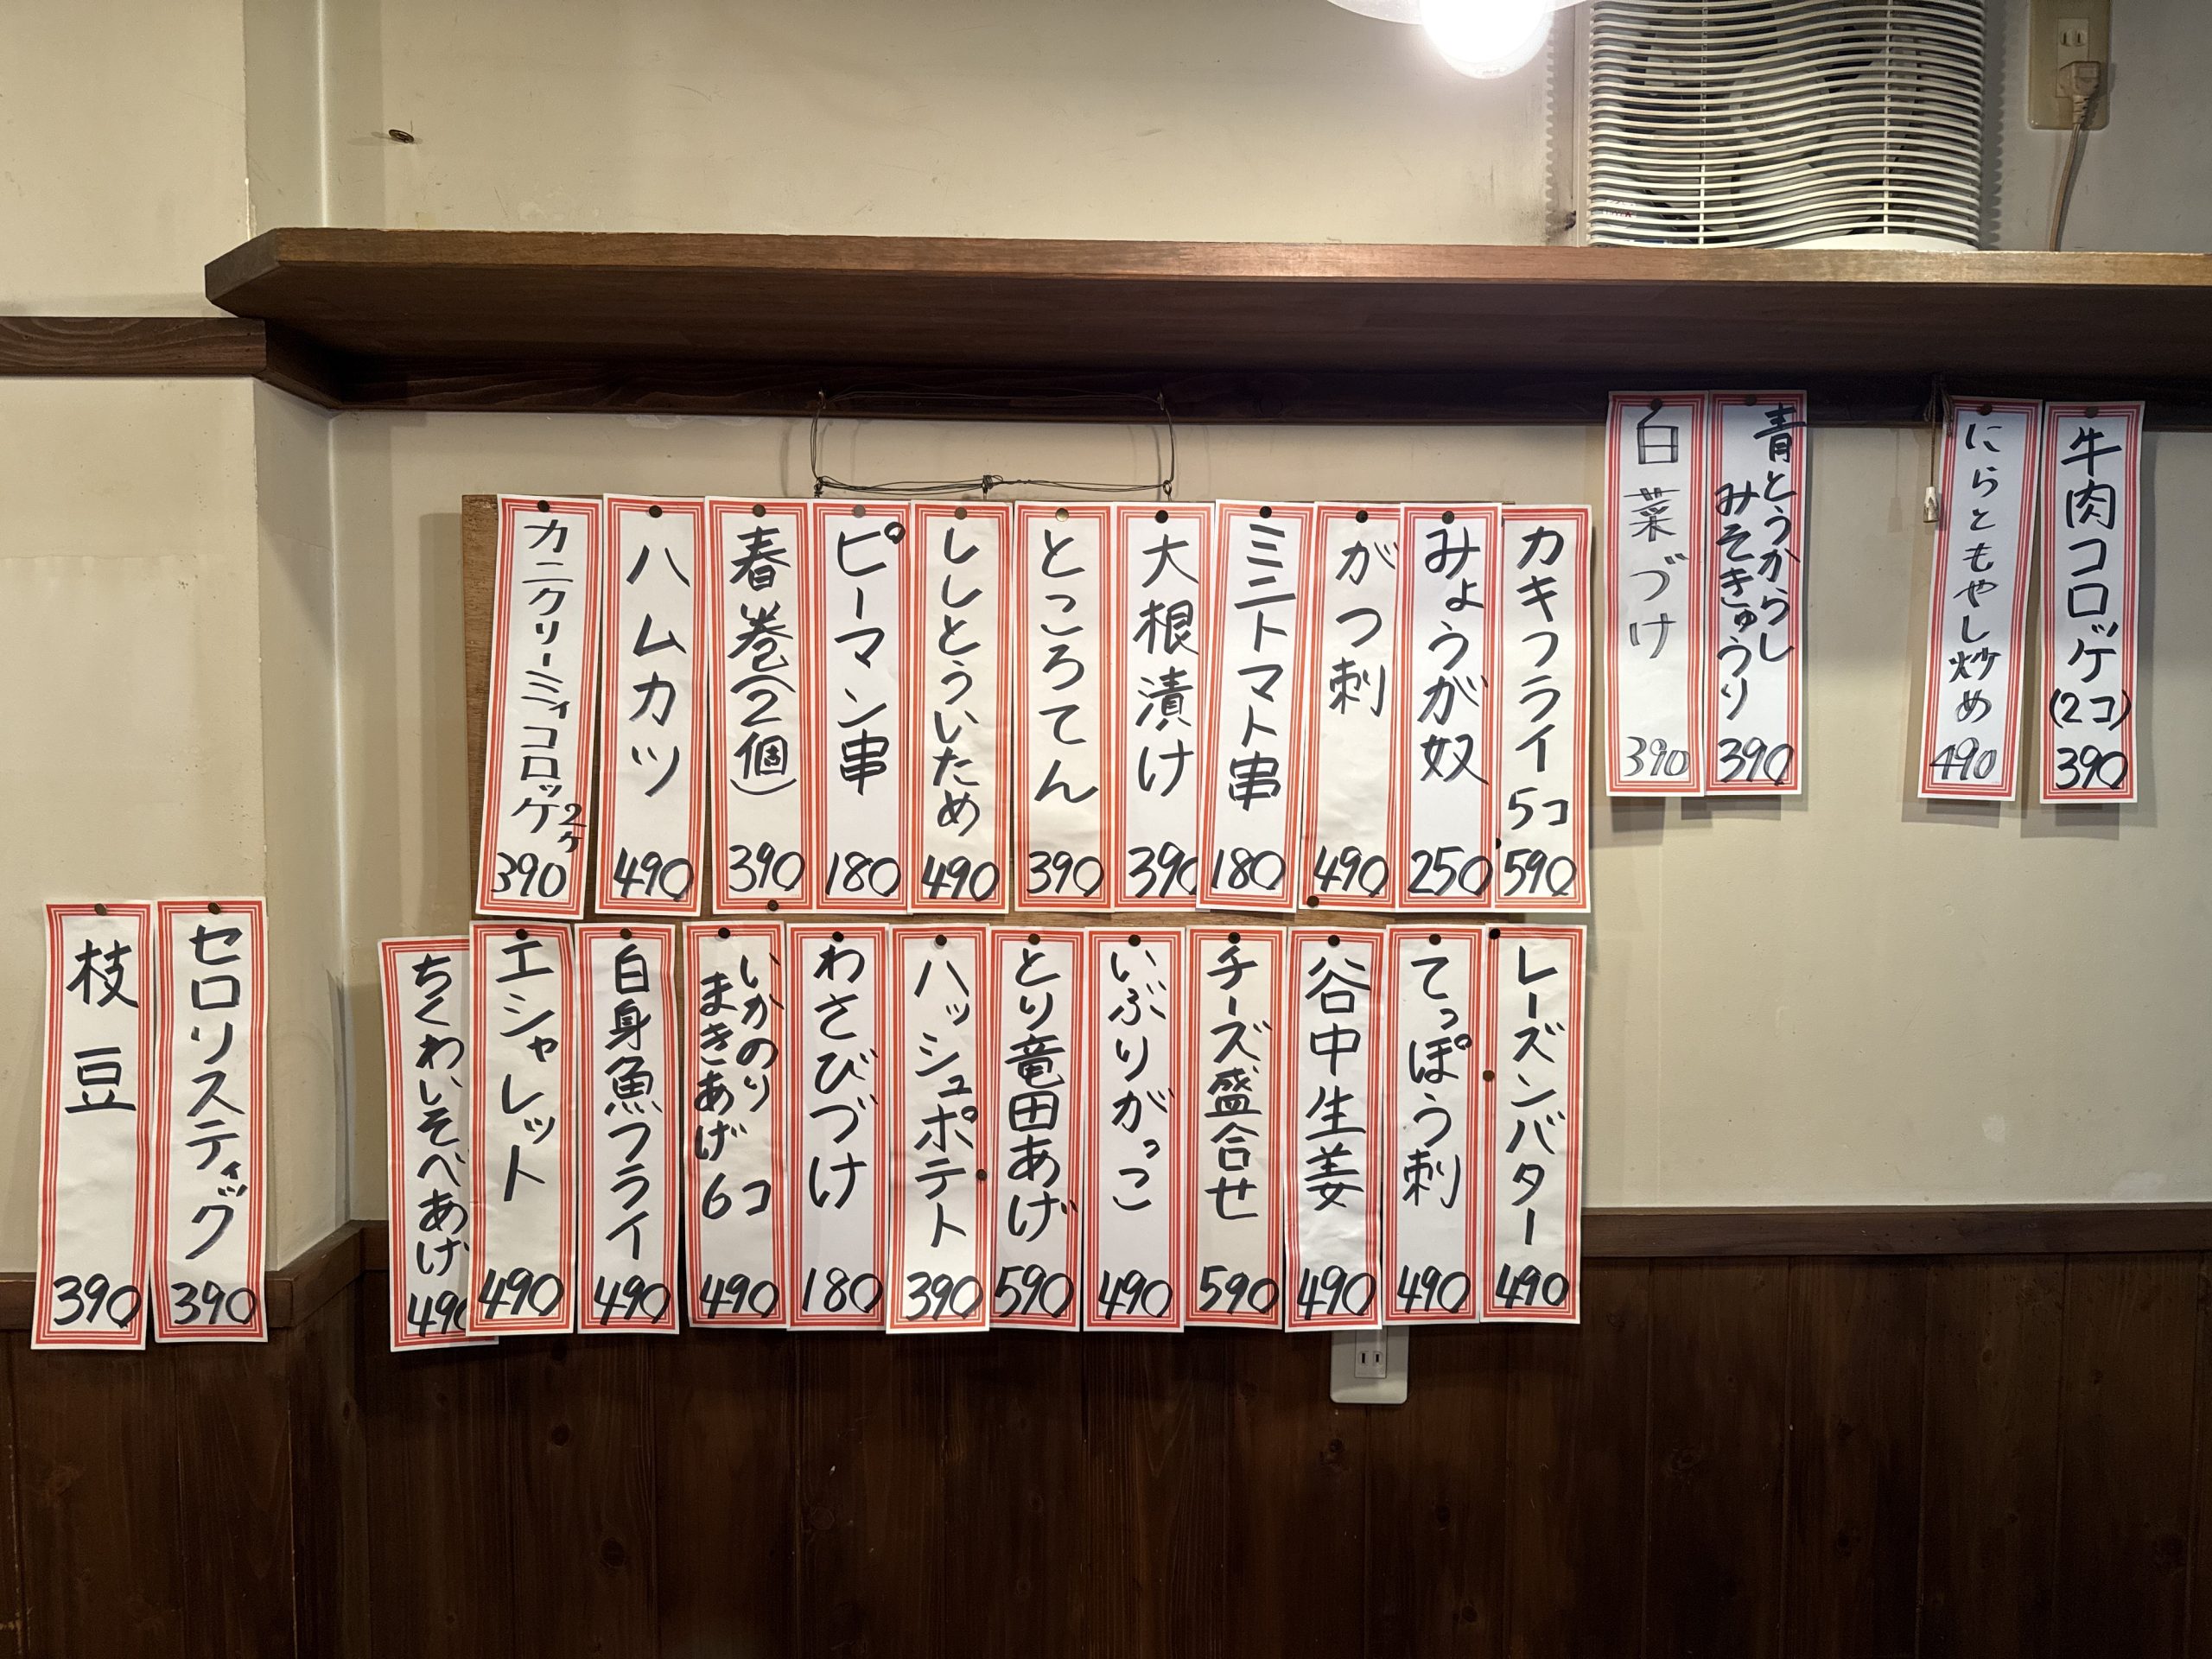 牛肉コロッケ
(2コ)
390
にらともやし炒め
490
青とうからし
みそきゅうり
390
白菜づけ
390
カキフライ
5コ
590
みょうが奴
250
がつ刺
490
ミニトマト串
180
大根漬け
390
ところてん
390
ししとういため
490
ピーマン串
180
春巻(2個)
390
ハムカツ
490
カニクリーミィコロッケ2ケ
390
レーズンバター
490
てっぽう刺
490
谷中生姜
490
チーズ盛合せ
590
いぶりがっこ
490
とり竜田あげ
590
ハッシュポテト
390
わさびづけ
180
いかのり
まきあげ 6コ
490
白身魚フライ
490
エシャレット
490
ちくわいそべあげ
490
セロリスティック
390
枝豆
390